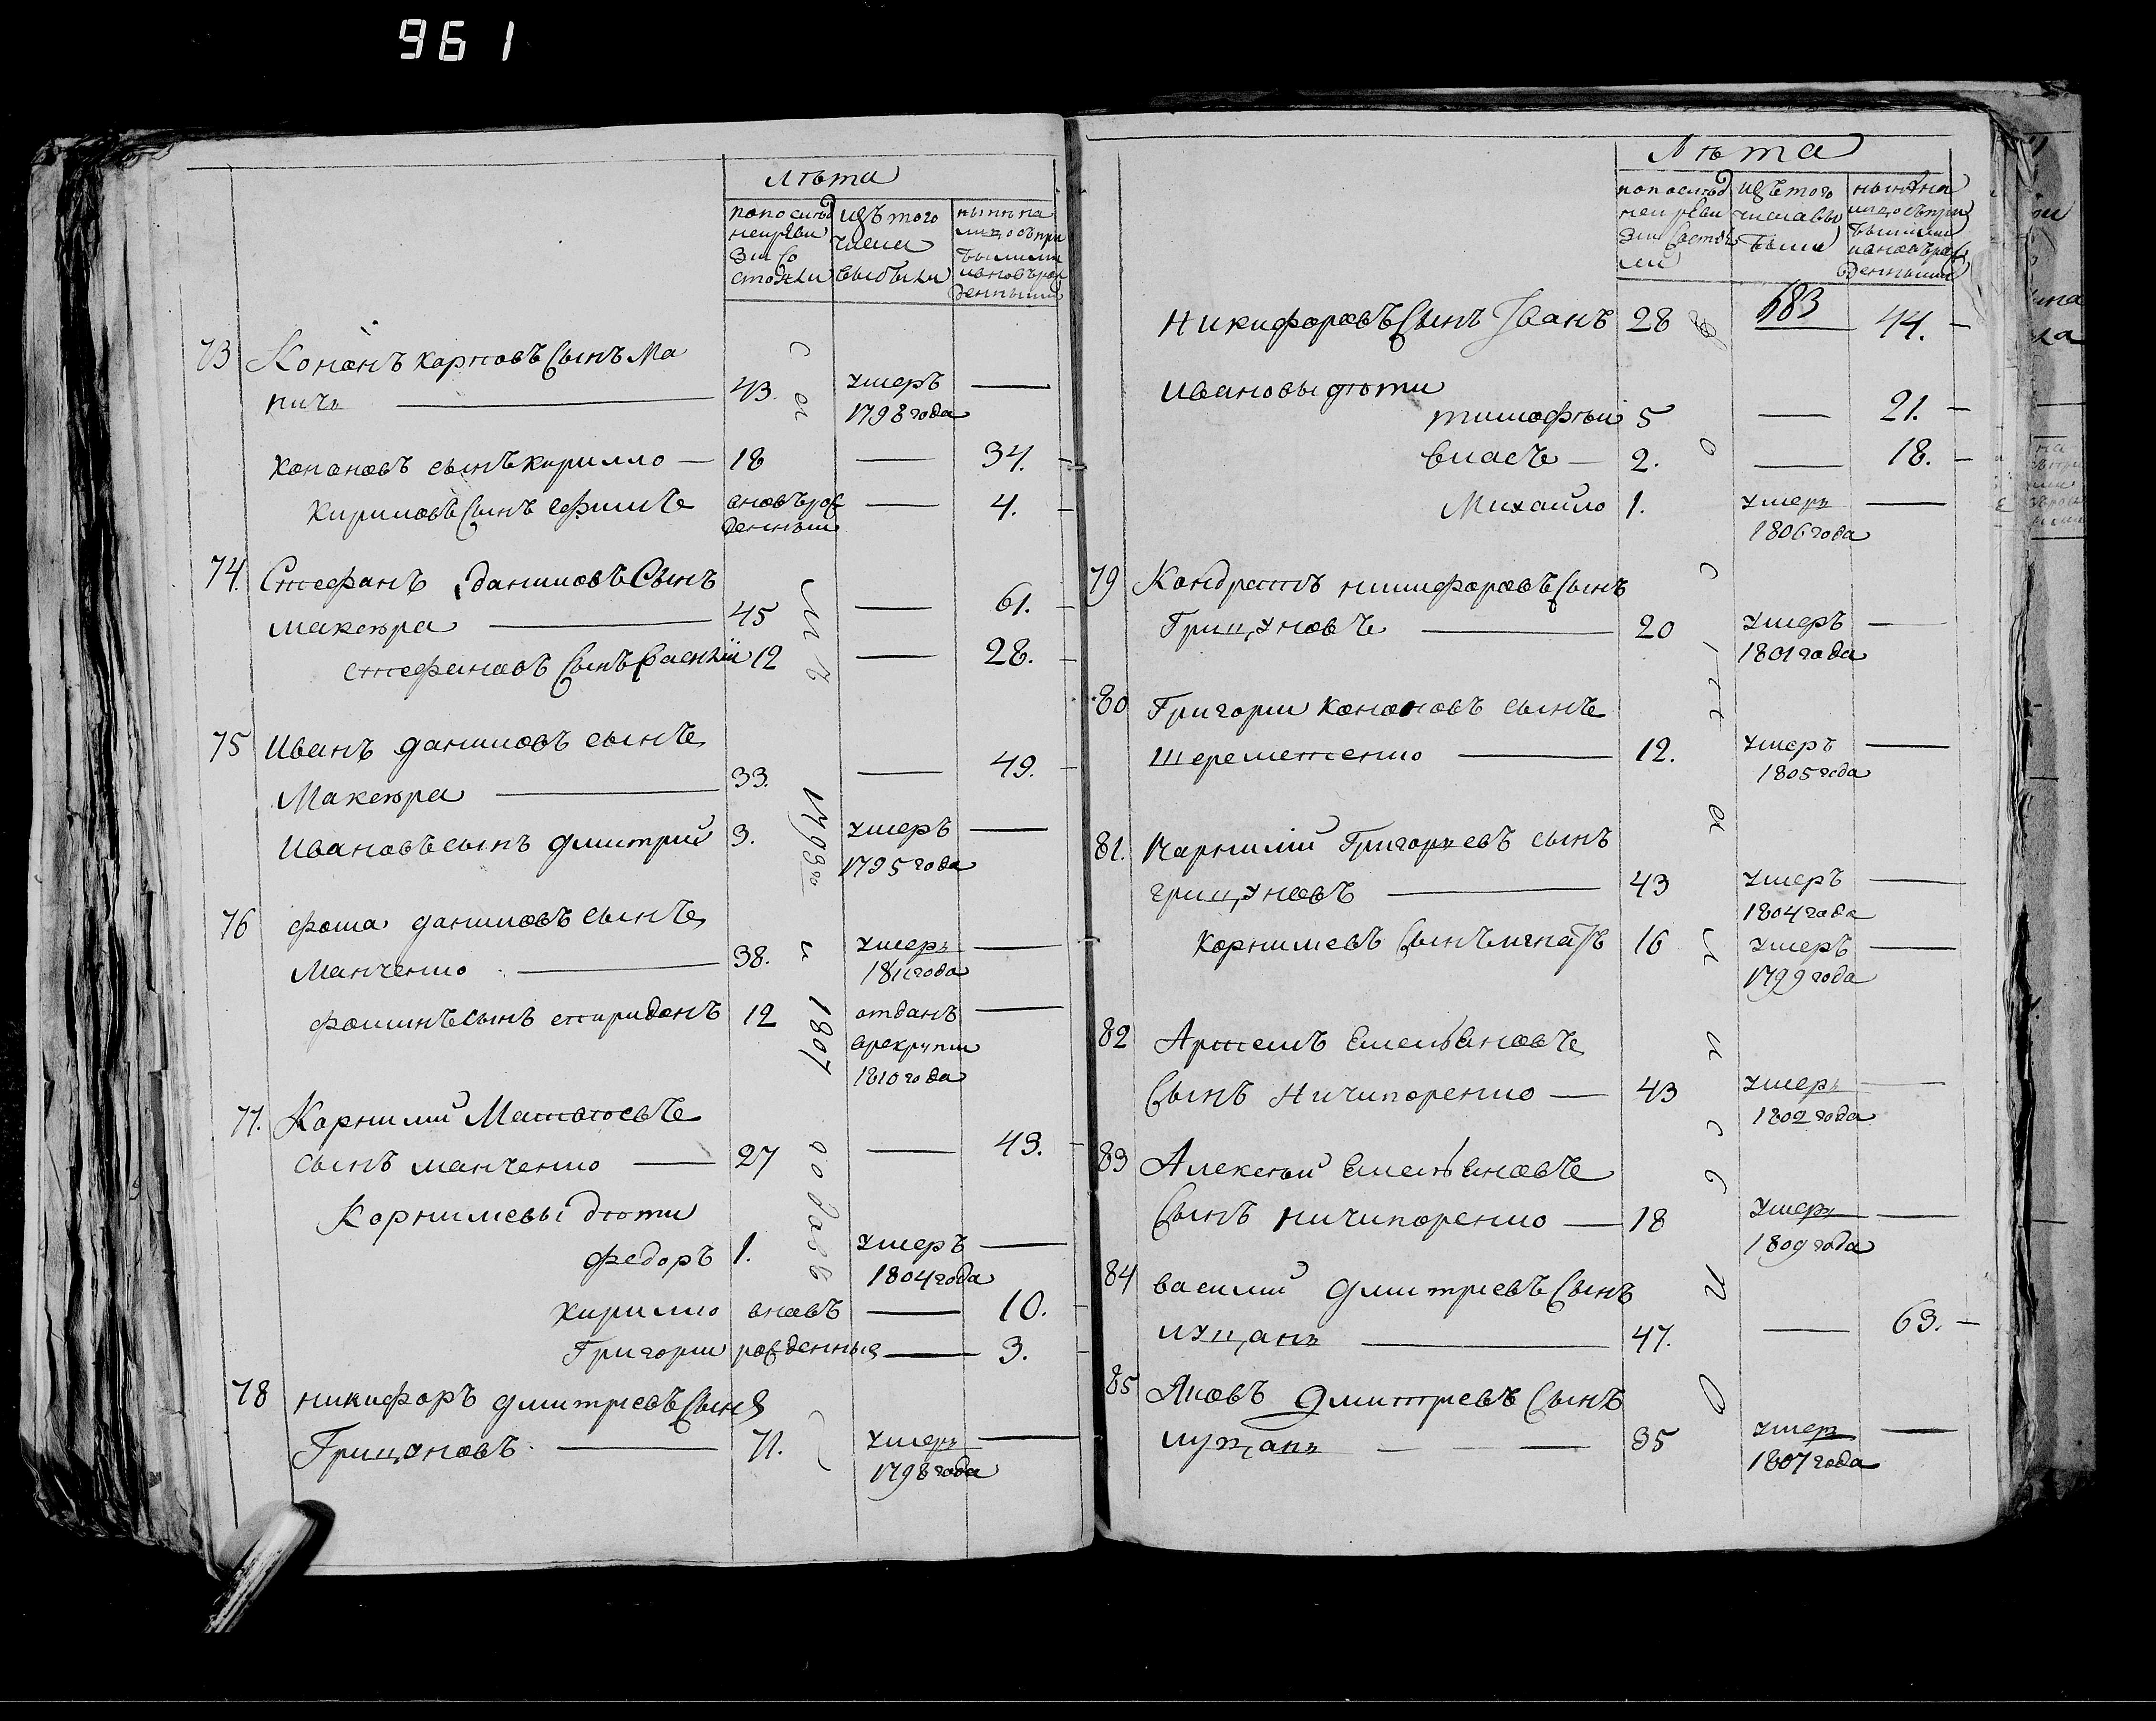 961
Лѣта
по послѣд
ней реви
зіи со
стояли
изъ того
числа
выбыли
нынѣ на
лицо съ при
былыми
и вновь рож
денными
73 Кононъ карповъ Сынъ Ма
ничь 43. умеръ
1798 года
кононовъ сынъ кирилло 18 34.
Кириловъ Сынъ ефимъ вновь рож
денный 4.
74. Стефанъ даниловъ Сынъ
макетра 45 61.
стефановъ Сынъ Василій 12 28.
75 Иванъ даниловъ сынъ
Макетра 33. 49.
Ивановъ сынъ дмитрий 3. умеръ
1795 года
76 фома даниловъ сынъ
Манченко 38. умеръ
1811 года
фоминъ сынъ спиридонъ 12 отданъ
врекруты
1810 года
77. Корнилий Матвѣевъ
сынъ манченко 27 43.
Корнилиевы дѣти
федоръ 1. умеръ
1804 года
кирилло вновь 10.
Григори рожденныя 3.
78 никифоръ дмитревъ Сынъ
Грицуновъ 71. умеръ
1798 года
1793го и 1807 годовъ
Лѣта
по послѣд
ней реви
зіи состоя
ли
изъ того
числа вы
были
нынѣ на
лицо съ при
былыми
и вновь рож
денными
683
Никифоровъ Сынъ Іванъ 28 44.
Ивановы дѣти
тимофѣй 5 21.
Власъ 2. 18.
Михайло 1. умеръ
1806 года
79 Кондратъ никифоровъ Сынъ
Грицуновъ 20 умеръ
1801 года
80 Григори Кононовъ сынъ
Шереметенко 12. умеръ
1805 года
81. Карнилій Григорьевъ сынъ
грицуновъ 43 умеръ
1804 года
Корнилиевъ Сынъ игнатъ 16 умеръ
1799 года
82 Артемъ Емельяновъ
Сынъ Ничипоренко 43 умеръ
1802 года
83 Алексѣй Емельяновъ
Сынъ ничипоренко 18 умеръ
1809 года
84 василий Дмитріевъ Сынъ
луцань 47. 63.
85 Яковъ Дмитревъ Сынъ
луцань 35 умеръ
1807 года